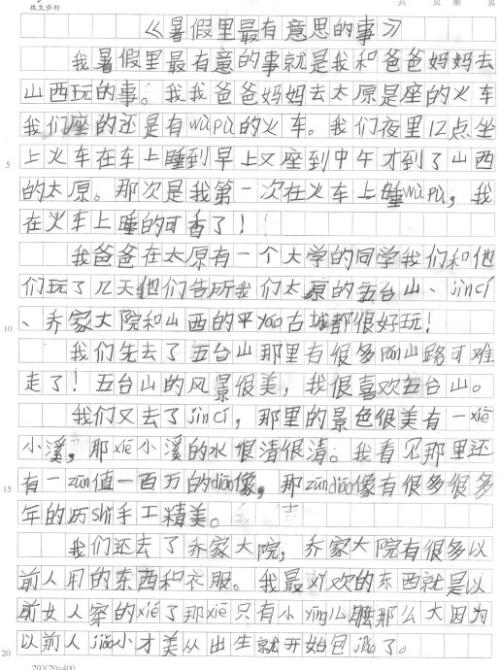 《暑假里最有意思的事》
我暑假里最有意的事就是我和爸爸妈妈去
山西玩的事。我我爸爸妈妈去太原是座的火车
我们座的还是有wūpù的火车。我们夜里12点坐
上火车在车上睡到早上又座到中午才到了山西
5
的太原。那次是我第一次在火车上睡wūpù，我
在火车上睡的可香了！！
我爸爸在太原有一个大学的同学我们和他
们玩了几天他们告所我们太原的五台山、jìncí
10
、乔家大院和山西的平yáo古城都很好玩！
我们先去了五台山那里有很多山路可难
走了！五台山的风景很美，我很喜欢五台山。
我们又去了jìncí，那里的景色很美有一xiē
小溪，那xiē小溪的水很清很清。我看见那里还
15
有一zūn值一百万的diāo像，那zūndiāo像有很多很多
年的历shǐ手工精美。
我们还去了乔家大院，乔家大院有很多以
前人用的东西和衣服。我最对欢的东西就是以
前女人穿的xié了那xié只有小yīng儿脚那么大因为
20
以前人jiǎo小才美从出生就开始包jiǎo了。
20×20=400